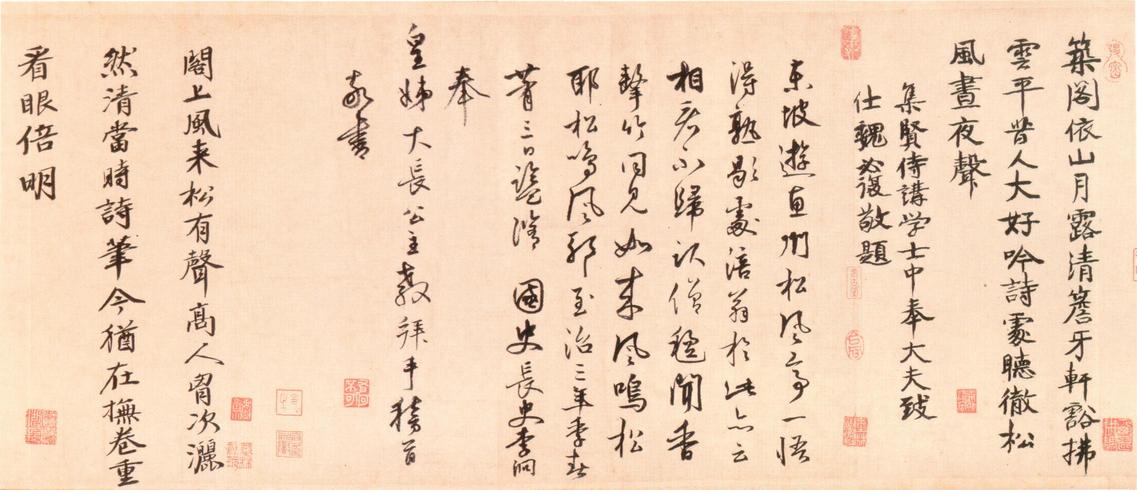 築閣依山月露清簷牙軒豁拂
雲平昔人大好吟詩處聽徹松
風晝夜聲
集賢侍講学士中奉大夫致
仕魏必復敬題
東坡遊惠州松風亭一悟
得熟歇處涪翁於此亦云
相君小歸僧聞香
擊竹同見如来風鳴松
耶松鳴風耶至治三年季春
三日盥滌 國史長史李泂
奉
皇姊大長公主教拜手稽首
敬書
閣上風来松有聲高人胷次灑
然清當時詩筆今猶在撫卷重
看眼倍明